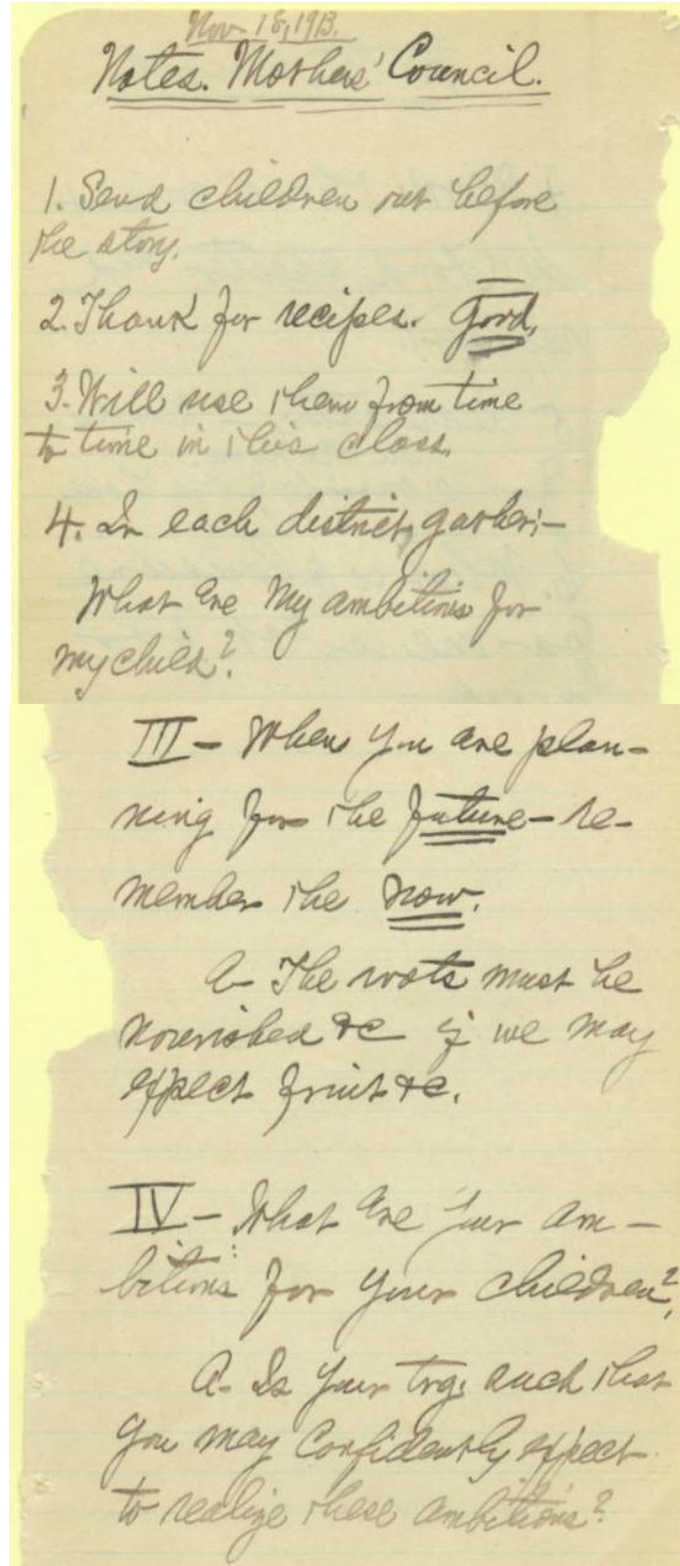 Nov 18, 1913.
Notes. Mothers' Council.
1. Send children out before
the story.
2. Thank for recipes. Good.
3. Will use them from time
to time in this class.
4. In each district gather:—
What are my ambitions for
my child?
III — When you are plan-
ning for the future — re-
member the now.
a- The roots must be
nourished &c if we may
expect fruit &c.
IV — What are your am-
bitions for your children?
a- Is your trg. such that
you may confidently expect
to realize these ambitions?